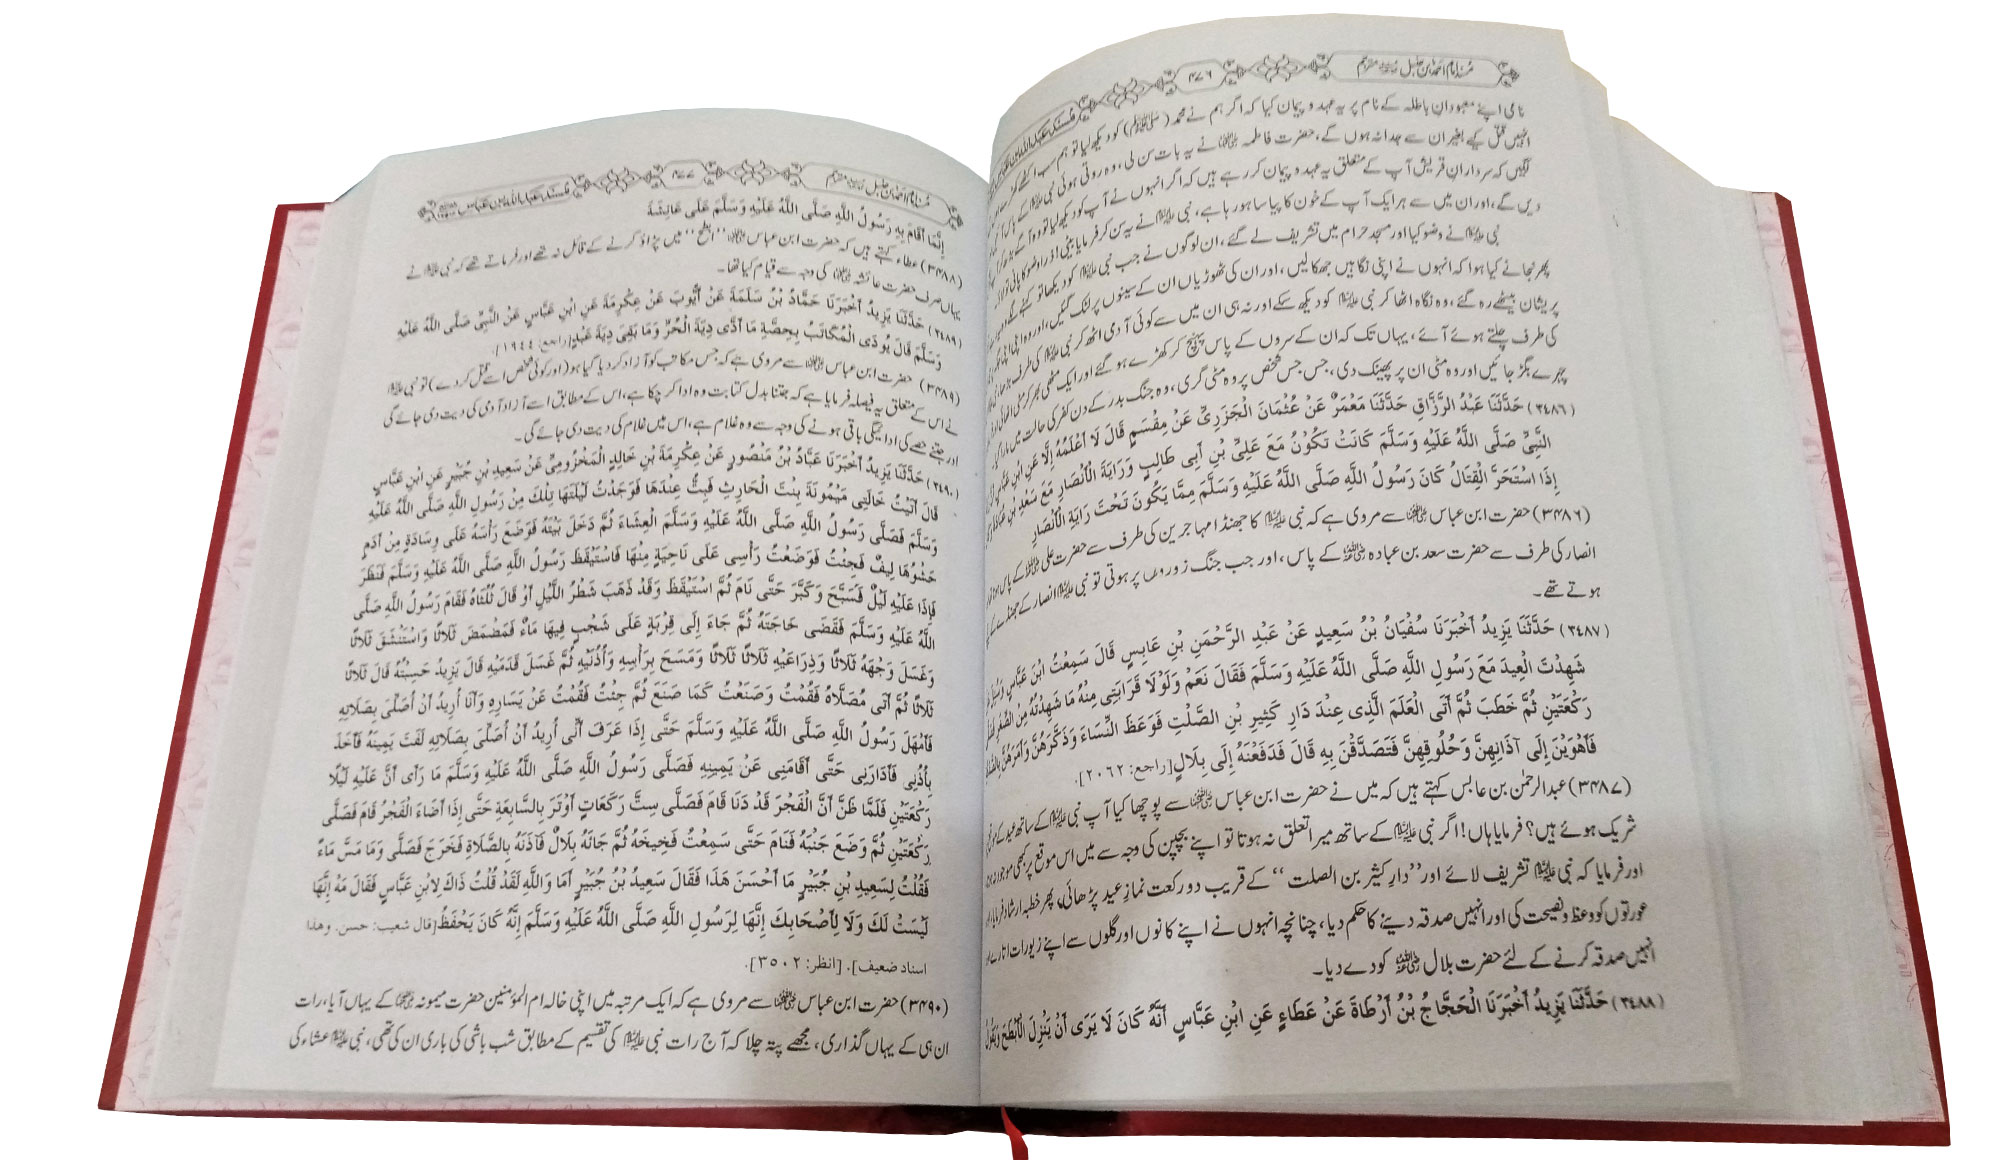 مسند امام احمد بن حنبل مترجم
۴۷۶
مسند عبد اللہ بن
نامی اپنے معبودانِ باطلہ کے نام پر یہ عہد و پیمان کیا کہ اگر ہم نے محمد (ﷺ) کو دیکھ لیا تو ہم سب اکٹھے کھڑے
انہیں قتل کیے بغیر ان سے جدا نہ ہوں گے، حضرت فاطمہ نے یہ بات سن لی، وہ روتی ہوئی نبی علیہ السلام کے پاس
لگیں کہ سردارانِ قریش آپ کے متعلق یہ عہد و پیمان کر رہے ہیں کہ اگر انہوں نے آپ کو دیکھ لیا تو وہ آگے بڑھ کر
دیں گے، اور ان میں سے ہر ایک آپ کے خون کا پیاسا ہو رہا ہے، نبی علیہ السلام نے یہ سن کر فرمایا بیٹی! ذرا وضو کا پانی تو لاؤ
نبی علیہ السلام نے وضو کیا اور مسجد حرام میں تشریف لے گئے، ان لوگوں نے جب نبی علیہ السلام کو دیکھا تو کہنے لگے
پھر نجانے کیا ہوا کہ انہوں نے اپنی نگاہیں جھکا لیں، اور ان کی ٹھوڑیاں ان کے سینوں پر لٹک گئیں، اور وہ اپنی اپنی
پریشان بیٹھے رہ گئے، وہ نگاہ اٹھا کر نبی علیہ السلام کو دیکھ سکے اور نہ ہی ان میں سے کوئی آدمی اٹھ کر نبی علیہ السلام کی طرف بڑھا
کی طرف چلتے ہوئے آئے، یہاں تک کہ ان کے سروں کے پاس پہنچ کر کھڑے ہو گئے اور ایک مٹھی بھر کر مٹی اٹھائی اور
چہرے بگڑ جائیں اور وہ مٹی ان پر پھینک دی، جس جس شخص پر وہ مٹی گری، وہ جنگ بدر کے دن کفر کی حالت میں مارا گیا
(۳۴۸۶) حَدَّثَنَا عَبْدُ الرَّزَّاقِ حَدَّثَنَا مَعْمَرٌ عَنْ عُثْمَانَ الْجَزَرِيِّ عَنْ مِقْسَمٍ قَالَ لَا أَعْلَمُهُ إِلَّا عَنِ ابْنِ عَبَّاسٍ
النَّبِيِّ صَلَّى اللَّهُ عَلَيْهِ وَسَلَّمَ كَانَتْ تَكُونُ مَعَ عَلِيِّ بْنِ أَبِي طَالِبٍ وَرَايَةَ الْأَنْصَارِ مَعَ سَعْدِ بْنِ عُبَادَةَ
إِذَا اسْتَحَرَّ الْقِتَالُ كَانَ رَسُولُ اللَّهِ صَلَّى اللَّهُ عَلَيْهِ وَسَلَّمَ مِمَّا يَكُونُ تَحْتَ رَايَةِ الْأَنْصَارِ
(۳۴۸۶) حضرت ابن عباس سے مروی ہے کہ نبی علیہ السلام کا جھنڈا مہاجرین کی طرف سے حضرت علی کے پاس
انصار کی طرف سے حضرت سعد بن عبادہ کے پاس، اور جب جنگ زوروں پر ہوتی تو نبی علیہ السلام انصار کے جھنڈے کے
ہوتے تھے۔
(۳۴۸۷) حَدَّثَنَا يَزِيدُ أَخْبَرَنَا سُفْيَانُ بْنُ سَعِيدٍ عَنْ عَبْدِ الرَّحْمَنِ بْنِ عَابِسٍ قَالَ سَمِعْتُ ابْنَ عَبَّاسٍ
شَهِدْتَ الْعِيدَ مَعَ رَسُولِ اللَّهِ صَلَّى اللَّهُ عَلَيْهِ وَسَلَّمَ فَقَالَ نَعَمْ وَلَوْلَا قَرَابَتِي مِنْهُ مَا شَهِدْتُهُ مِنْ الصِّغَرِ
رَكْعَتَيْنِ ثُمَّ خَطَبَ ثُمَّ أَتَى الْعَلَمَ الَّذِي عِنْدَ دَارِ كَثِيرِ بْنِ الصَّلْتِ فَوَعَظَ النِّسَاءَ وَذَكَّرَهُنَّ وَأَمَرَهُنَّ
فَأَهْوَيْنَ إِلَى آذَانِهِنَّ وَحُلُوقِهِنَّ فَتَصَدَّقْنَ بِهِ قَالَ فَدَفَعْنَهُ إِلَى بِلَالٍ [راجع: ٢٠٦٢].
(۳۴۸۷) عبدالرحمٰن بن عابس کہتے ہیں کہ میں نے حضرت ابن عباس سے پوچھا کیا آپ نبی علیہ السلام کے ساتھ عید کے
شریک ہوئے ہیں؟ فرمایا ہاں! اگر نبی علیہ السلام کے ساتھ میرا تعلق نہ ہوتا تو اپنے بچپن کی وجہ سے میں اس موقع پر کبھی موجود
اور فرمایا کہ نبی علیہ السلام تشریف لائے اور ”دارِ کثیر بن الصلت“ کے قریب دو رکعت نمازِ عید پڑھائی، پھر خطبہ ارشاد فرمایا
عورتوں کو وعظ و نصیحت کی اور انہیں صدقہ دینے کا حکم دیا، چنانچہ انہوں نے اپنے کانوں اور گلوں سے اپنے زیورات اتارے
انہیں صدقہ کرنے کے لئے حضرت بلال کو دے دیا۔
(۳۴۸۸) حَدَّثَنَا يَزِيدُ أَخْبَرَنَا الْحَجَّاجُ بْنُ أَرْطَاةَ عَنْ عَطَاءٍ عَنِ ابْنِ عَبَّاسٍ أَنَّهُ كَانَ لَا يَرَى أَنْ يَنْزِلَ الْأَبْطَحَ وَيَقُولُ
مسند امام احمد بن حنبل مترجم
۴۷۷
مسند عبد اللہ بن عباس
إِنَّمَا أَقَامَ بِهِ رَسُولُ اللَّهِ صَلَّى اللَّهُ عَلَيْهِ وَسَلَّمَ عَلَى عَائِشَةَ
(۳۴۸۸) عطاء کہتے ہیں کہ حضرت ابن عباس ”ابطح“ میں پڑاؤ کرنے کے قائل نہ تھے اور فرماتے تھے کہ نبی علیہ السلام نے
یہاں صرف حضرت عائشہ کی وجہ سے قیام کیا تھا۔
(۳۴۸۹) حَدَّثَنَا يَزِيدُ أَخْبَرَنَا حَمَّادُ بْنُ سَلَمَةَ عَنْ أَيُّوبَ عَنْ عِكْرِمَةَ عَنِ ابْنِ عَبَّاسٍ عَنْ النَّبِيِّ صَلَّى اللَّهُ عَلَيْهِ
وَسَلَّمَ قَالَ يُودَى الْمُكَاتَبُ بِحِصَّةِ مَا أَدَّى دِيَةَ الْحُرِّ وَمَا بَقِيَ دِيَةَ عَبْدٍ [راجع: ١٩٤٤].
(۳۴۸۹) حضرت ابن عباس سے مروی ہے کہ جس مکاتب کو آزاد کر دیا گیا ہو (اور کوئی شخص اسے قتل کر دے) تو نبی علیہ السلام
نے اس کے متعلق یہ فیصلہ فرمایا ہے کہ جتنا بدل کتابت وہ ادا کر چکا ہے، اس کے مطابق اسے آزاد آدمی کی دیت دی جائے گی
اور جتنے حصے کی ادائیگی باقی ہونے کی وجہ سے وہ غلام ہے، اس میں غلام کی دیت دی جائے گی۔
(۳۴۹۰) حَدَّثَنَا يَزِيدُ أَخْبَرَنَا عَبَّادُ بْنُ مَنْصُورٍ عَنْ عِكْرِمَةَ بْنِ خَالِدٍ الْمَخْزُومِيِّ عَنْ سَعِيدِ بْنِ جُبَيْرٍ عَنِ ابْنِ عَبَّاسٍ
قَالَ أَتَيْتُ خَالَتِي مَيْمُونَةَ بِنْتَ الْحَارِثِ فَبِتُّ عِنْدَهَا فَوَجَدْتُ لَيْلَتَهَا تِلْكَ مِنْ رَسُولِ اللَّهِ صَلَّى اللَّهُ عَلَيْهِ
وَسَلَّمَ فَصَلَّى رَسُولُ اللَّهِ صَلَّى اللَّهُ عَلَيْهِ وَسَلَّمَ الْعِشَاءَ ثُمَّ دَخَلَ بَيْتَهُ فَوَضَعَ رَأْسَهُ عَلَى وِسَادَةٍ مِنْ أَدَمٍ
حَشْوُهَا لِيفٌ فَجِئْتُ فَوَضَعْتُ رَأْسِي عَلَى نَاحِيَةٍ مِنْهَا فَاسْتَيْقَظَ رَسُولُ اللَّهِ صَلَّى اللَّهُ عَلَيْهِ وَسَلَّمَ فَنَظَرَ
فَإِذَا عَلَيْهِ لَيْلٌ فَسَبَّحَ وَكَبَّرَ حَتَّى نَامَ ثُمَّ اسْتَيْقَظَ وَقَدْ ذَهَبَ شَطْرُ اللَّيْلِ أَوْ قَالَ ثُلُثَاهُ فَقَامَ رَسُولُ اللَّهِ صَلَّى
اللَّهُ عَلَيْهِ وَسَلَّمَ فَقَضَى حَاجَتَهُ ثُمَّ جَاءَ إِلَى قِرْبَةٍ عَلَى شَجْبٍ فِيهَا مَاءٌ فَمَضْمَضَ ثَلَاثًا وَاسْتَنْشَقَ ثَلَاثًا
وَغَسَلَ وَجْهَهُ ثَلَاثًا وَذِرَاعَيْهِ ثَلَاثًا ثَلَاثًا وَمَسَحَ بِرَأْسِهِ وَأُذُنَيْهِ ثُمَّ غَسَلَ قَدَمَيْهِ قَالَ يَزِيدُ حَسِبْتُهُ قَالَ ثَلَاثًا
ثَلَاثًا ثُمَّ أَتَى مُصَلَّاهُ فَقُمْتُ وَصَنَعْتُ كَمَا صَنَعَ ثُمَّ جِئْتُ فَقُمْتُ عَنْ يَسَارِهِ وَأَنَا أُرِيدُ أَنْ أُصَلِّيَ بِصَلَاتِهِ
فَأَمْهَلَ رَسُولُ اللَّهِ صَلَّى اللَّهُ عَلَيْهِ وَسَلَّمَ حَتَّى إِذَا عَرَفَ أَنِّي أُرِيدُ أَنْ أُصَلِّيَ بِصَلَاتِهِ لَفَتَ يَمِينَهُ فَأَخَذَ
بِأُذُنِي فَأَدَارَنِي حَتَّى أَقَامَنِي عَنْ يَمِينِهِ فَصَلَّى رَسُولُ اللَّهِ صَلَّى اللَّهُ عَلَيْهِ وَسَلَّمَ مَا رَأَى أَنَّ عَلَيْهِ لَيْلًا
رَكْعَتَيْنِ فَلَمَّا ظَنَّ أَنَّ الْفَجْرَ قَدْ دَنَا قَامَ فَصَلَّى سِتَّ رَكَعَاتٍ أَوْتَرَ بِالسَّابِعَةِ حَتَّى إِذَا أَضَاءَ الْفَجْرُ قَامَ فَصَلَّى
رَكْعَتَيْنِ ثُمَّ وَضَعَ جَنْبَهُ فَنَامَ حَتَّى سَمِعْتُ فَخِيخَهُ ثُمَّ جَاءَهُ بِلَالٌ فَآذَنَهُ بِالصَّلَاةِ فَخَرَجَ فَصَلَّى وَمَا مَسَّ مَاءً
فَقُلْتُ لِسَعِيدِ بْنِ جُبَيْرٍ مَا أَحْسَنَ هَذَا فَقَالَ سَعِيدُ بْنُ جُبَيْرٍ أَمَا وَاللَّهِ لَقَدْ قُلْتُ ذَاكَ لِابْنِ عَبَّاسٍ فَقَالَ مَهْ إِنَّهَا
لَيْسَتْ لَكَ وَلَا لِأَصْحَابِكَ إِنَّهَا لِرَسُولِ اللَّهِ صَلَّى اللَّهُ عَلَيْهِ وَسَلَّمَ إِنَّهُ كَانَ يَحْفَظُ [قال شعيب: حسن. وهذا
اسناد ضعيف]. [انظر: ٣٥٠٢].
(۳۴۹۰) حضرت ابن عباس سے مروی ہے کہ ایک مرتبہ میں اپنی خالہ ام المؤمنین حضرت میمونہ کے یہاں آیا، رات
ان ہی کے یہاں گذاری، مجھے پتہ چلا کہ آج رات نبی علیہ السلام کی تقسیم کے مطابق شب باشی کی باری ان کی تھی، نبی علیہ السلام عشاء کی